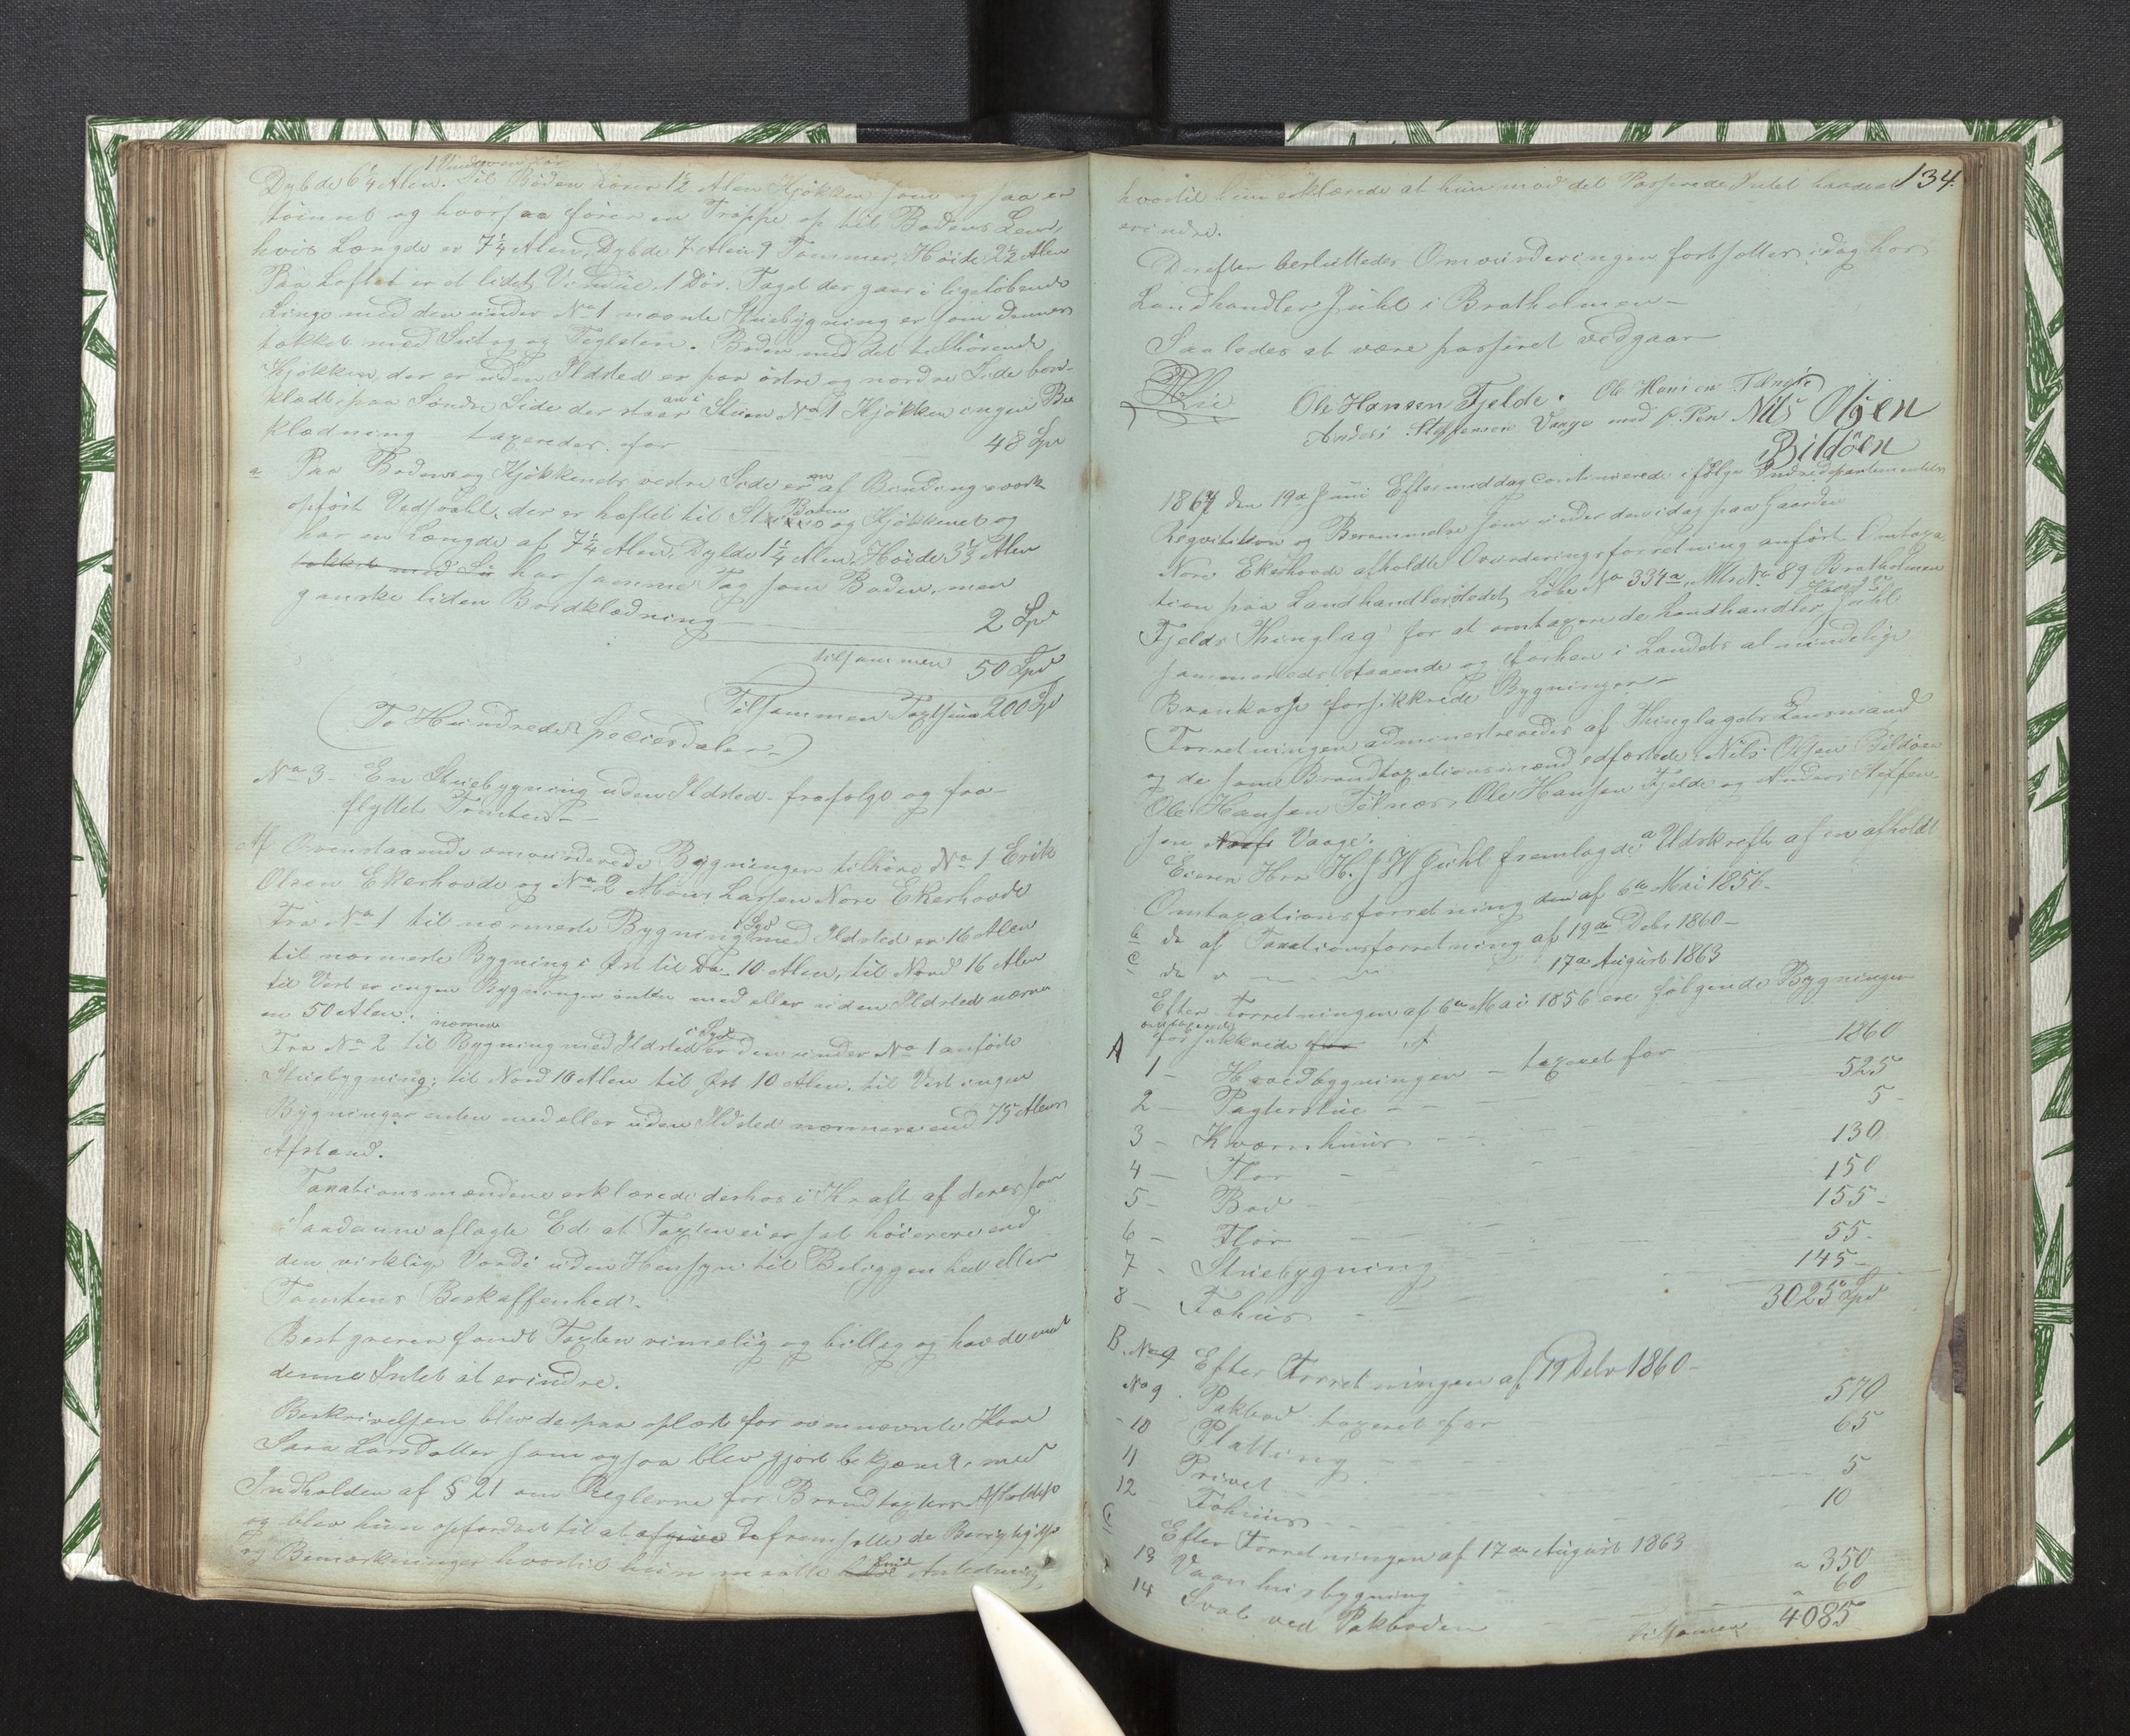 1 Vindue en Dør
Dybde 6 1/4 Alen. Til Boden hører 1 1/2 Alen Kjøkken som ogsaa er
tømret og hvorfra fører en Trappe op til Bodens Lem,
hvis Længde er 7 1/4 Alen, Dybde 7 Alen 9 Tommer, Høide 2 1/2 Alen
Paa Loftet er et lidet Vindue, 1 Dør. Taget der gaar i ligeløbende
Linge med den under No 1 nævnte Stuebygning er som denne
tækket med Sutag og Teglsten. Boden med det tilhørende
Kjøkken, der er uden Ildsted er paa østre og nordre Side bord-
klædt, paa Søndre Side der staar an i Stuen No 1 Kjøkken ingen Be
klædning taxeredes for 48 Spd
a Paa Bodens og Kjøkkenets vestre Side er en af Bindingsværk
opført Vedskaahl, der er hæftet til Boden og Kjøkkenet og
har en Længde af 7 1/4 Alen, Dybde 1 1/4 Alen, Høide 3 1/3 Alen
tækket med Su har samme Tag som Boden, men
ganske liden Bordklædning 2 Spd
tilsammen 50 Spd
Tilsammen Taxtsum 200 Spd
(To Hundrede Speciesdaler)
No 3 - En Stuebygning uden Ildsted - frafølge og fra-
flyttet Tomten -
Af Ovenstaaende omvurderede Bygninger tilhøre No 1 Erik
Olsen Ekerhovde og No 2 Mons Larsen Nore Ekerhovde
Fra No 1 til nærmeste Bygning i Syd med Ildsted er 16 Alen
til nærmeste Bygning i Øst til Do 10 Alen, til Nord 16 Alen
til Vest er ingen Bygninger enten med eller uden Ildsted nærme
en 50 Alen.
Fra No 2 til nærmeste Bygning med Ildsted i Syd er den under No 1 anførte
Stuebygning; til Nord 10 Alen til Øst 10 Alen, til Vest ingen
Bygninger enten med eller uden Ildsted nærmere end 75 Alens
Afstand.
Taxationsmændene erklærede derhos i Kraft af deres for
saadanne aflagte Ed at Taxten ei er sat høiere end
den virkelige Værdi uden Hensyn til Beliggenhed eller
Tomtens Beskaffenhed.
Bestyreren fandt Taxten rimelig og billig og havde mod
denne Intet at erindre.
Beskrivelsen blev derpaa oplæst for ovennævnte Kone
Sara Larsdatter som ogsaa blev gjort bekjendt med
Indholdet af § 21 om Reglerne for Brandtaxters Afholdelse
og blev hun opfordret til at afgive de fremsatte de Berigtigelser
og Bemærkninger hvortil hun maatte have Anledning,
134.
hvortil hun erklærede at hun mod det Passerede Intet havde at
erindre.
Derefter besluttedes Omvurderingen fortsættes idag hos
Landhandler Juhl i Bratholmen -
Saaledes at være passeret vedgaar
Ole Hansen Fjelde. Ole Hansen Tælnes
Anders Steffensen Vaage med p. Pen Nils Olsen
Bildøen
1864 den 19de Juni Eftermiddag continuerede ifølge Indredepartementets
Reqvisition og Berammelse som under den idag paa Gaarden
Nore Ekerhovde afholdte Omvurderingsforretning anført Omtaxa
tion paa Landhandlerstedet Løbe No 334a, Mtr No 89 Bratholmen
Fjelds Thinglag for at omtaxere de Landhandler Juhl
sammesteds staaende og forhen i Landets almindelige
Brankasse forsikkrede Bygninger -
Forretningen administreredes af Thinglagets Lensmand
og de som Brandtaxationsmænd edfæstede: Nils Olsen Bildøen
Ole Hansen Tælnes, Ole Hansen Fjelde og Anders Steffen-
sen Vaage.
Eieren Herr H. J W Juhl fremlagde a Udskrift af en afholdt
Omtaxationsforretning den af 6te Mai 1856 -
b do af Taxationsforretning af 19de Debr 1860 -
c do 17de August 1863
Efter Forretningen af 6te Mai 1856 ere følgende Bygninger
forsikkrede for
A 1 - Hovedbygningen - taxeret for 1860
2 - Pagterstue - 525
3 - Kværnhuus - 5 -
4 - Flor - 130
5 - Bod - 150
6 - Flor - 155 -
7 - Stuebygning 55 -
8 - Fæhus 145 -
3025 Spd
B. No 9 Efter Forretningen af 19 Debr 1860 -
No 9 Pakbod taxeret for 570
- 10 Platting 65
11 Privet 5
12 Fæhuus 10
C Efter Forretningen af 17de August 1863
13 Vaanhusbygning " 350
14 Sval ved Pakboden " 60
tilsamen 4085